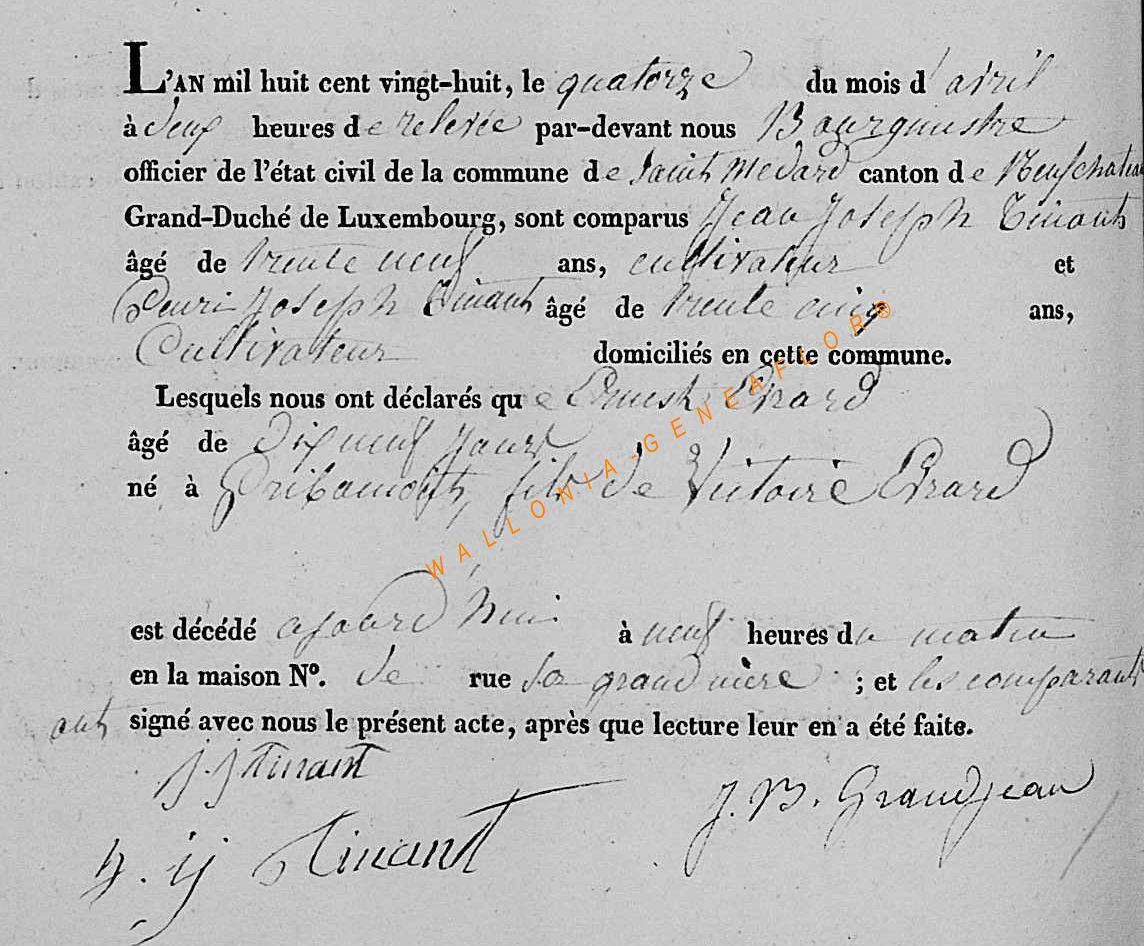 L'AN mil huit cent vingt-huit, le quatorze du mois d'avril
à deux heures de relevée par-devant nous Bourgmestre
officier de l'état civil de la commune de Saint Medard canton de Neufchateau
Grand-Duché de Luxembourg, sont comparus Jean Joseph Tinant
âgé de trente neuf ans, cultivateur et
Henri Joseph Tinant âgé de trente cinq ans,
Cultivateur domiciliés en cette commune.
Lesquels nous ont déclarés que Ernest Erard
âgé de Dix neuf jours
né à Gribomont, fils de Victoire Erard
est décédé ajourd'hui à neuf heures du matin
en la maison N°. de rue sa grand mère ; et les comparants
ont signé avec nous le présent acte, après que lecture leur en a été faite.
j. j Tinant
J. B. Grandjean
h. ij Tinant
WALLONIA-GENEAFLOR®